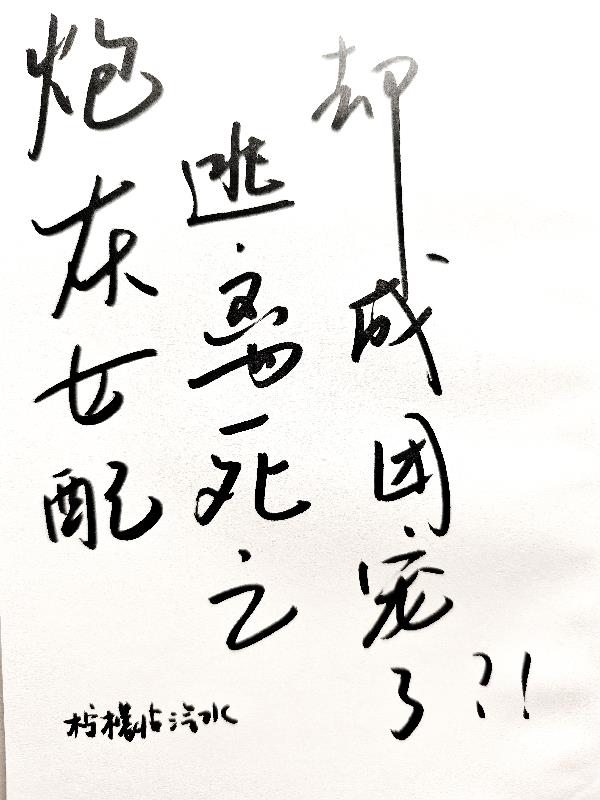 炮灰女配
逃离死亡
却成团宠了?!
柠檬沾汽水